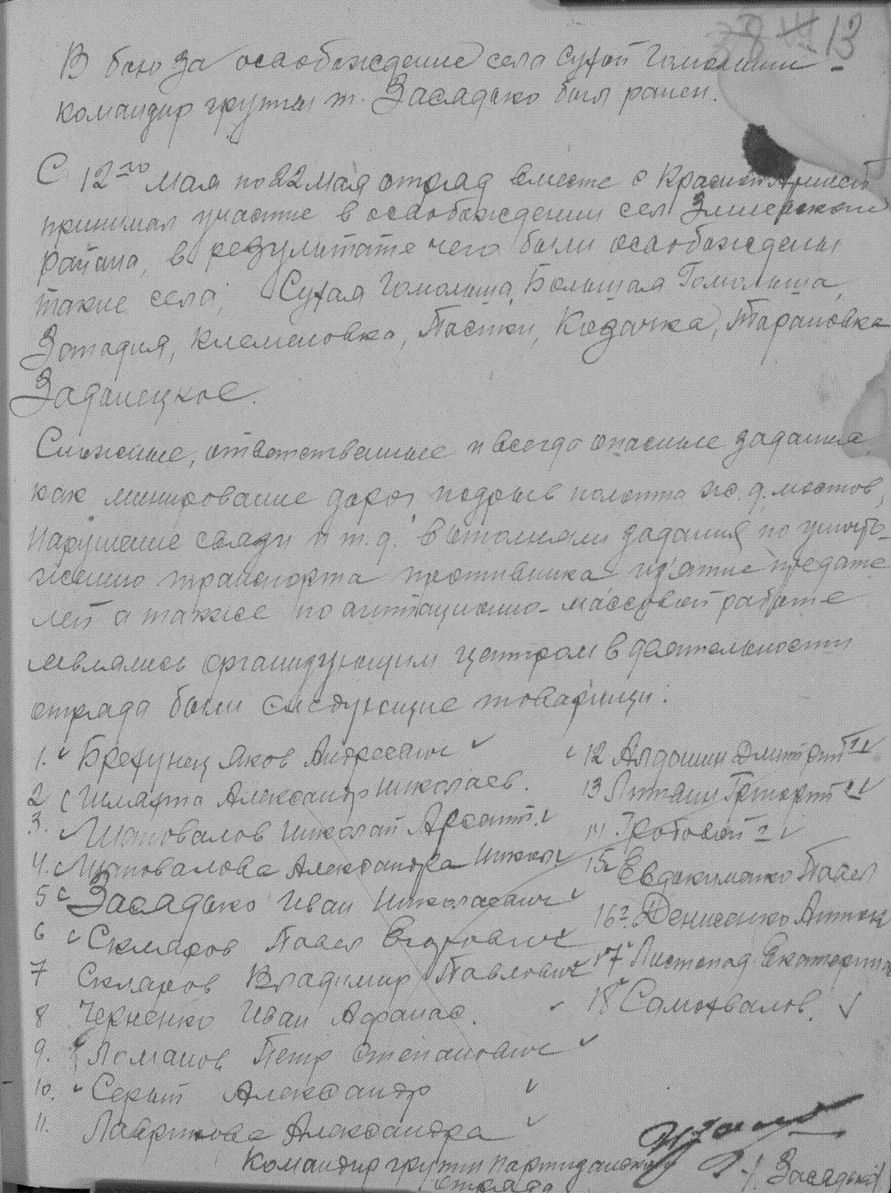 13
В бою за освобождение села Сухой Гомольши -
командир группы т. Засядько был ранен.
С 12го мая по 22 мая отряд вместе с Красной Армией
принимал участие в освобождении сел Змиевского
района, в результате чего были освобождены
такие села, Сухая Гомольша, Большая Гомольша,
Западня, Клеменовка, Пасеки, Козачка, Тарановка
Задонецкое.
Сложные, ответственные и всегда опасные задания
как минирование дорог подрыв полотна ж.д. мостов,
нарушение связи и т.д. выполняли задания по уничто-
жению транспорта противника из'ятие предате
лей а также по агитационно-массовой работе
являлись организующим центром в деятельности
отряда были следующие товарищи:
1. Брехунец Яков Андреевич
2 Шляхта Александр Николаев.
3. Шаповалов Николай Арсент.
4. Шаповалова Александра Никол.
5 Засядько Иван Николаевич
6 Скляров Павел Егорович
7 Скляров Владимир Павлович
8 Черненко Иван Афанас.
9. Ломанов Петр Степанович
10. Серый Александр
11. Лавринова Александра
12 Алдошин Дмитрий
13 Литвин Григорий
14 Гробовой
15 Евдокименко Павел
16 Денисенко Антон
17 Листопад Екатерина
18 Самохвалов.
Командир группы партизанского
отряда
/Засядько/